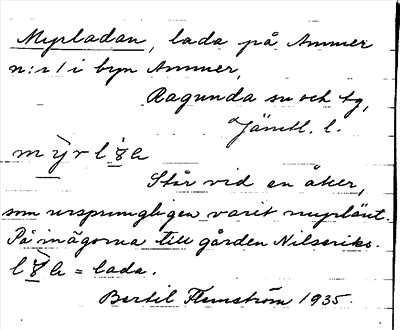 Myrladan, lada på Ammer
n:r 1 i byn Ammer,
Ragunda sn och tg,
Jämtl. l.
Står vid en åker,
som ursprungligen varit myrlänt.
På inägorna till gården Nilseriks.
= lada.
Bertil Flemström 1935.